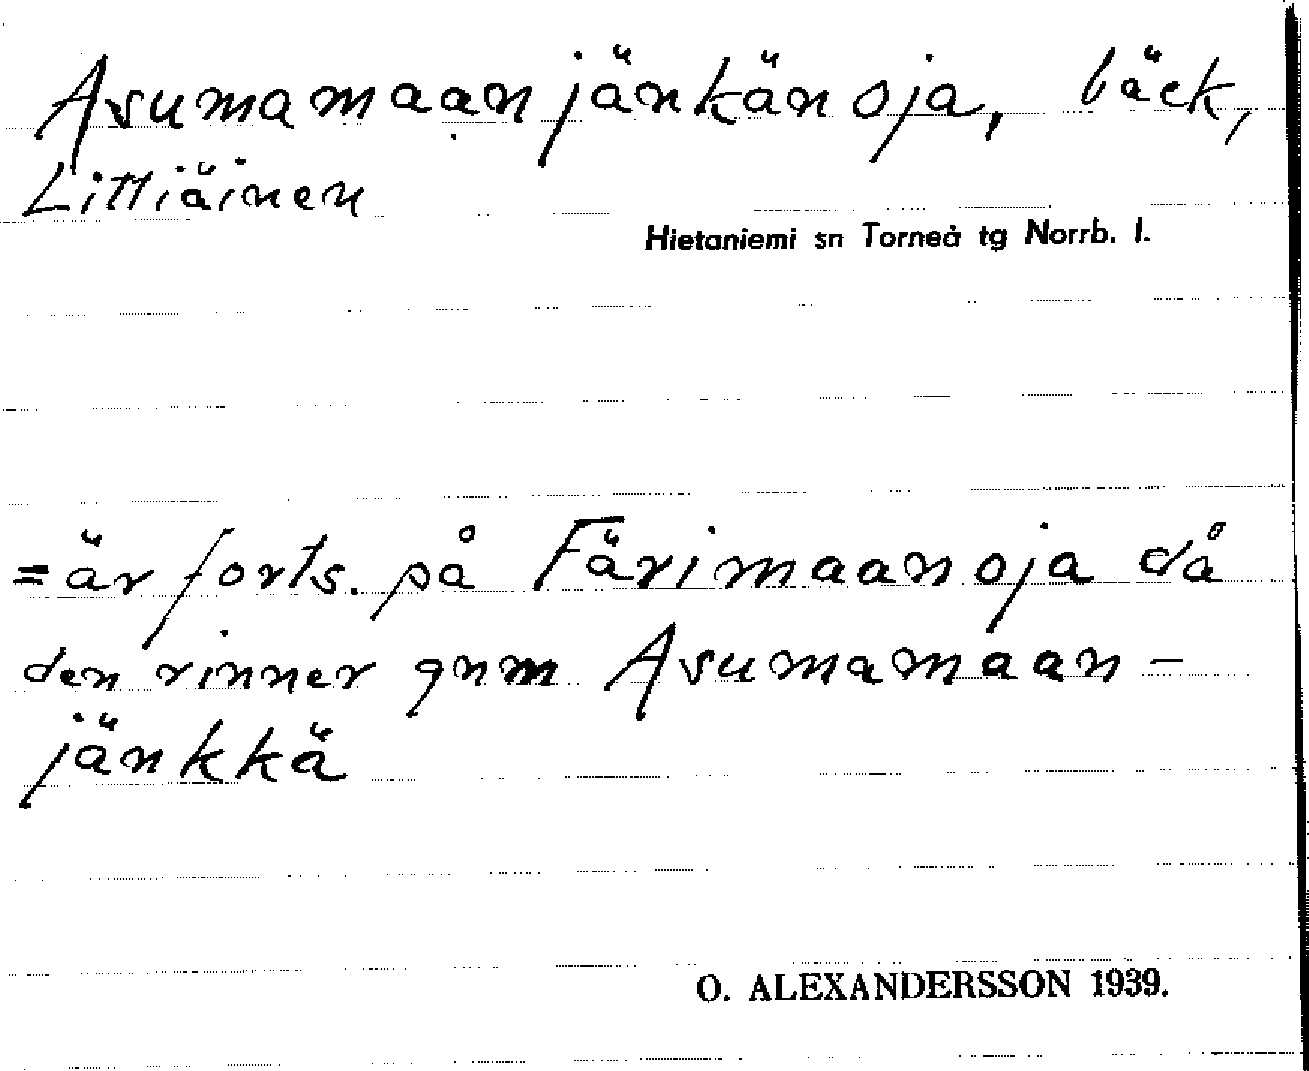 Asumamaanjänkänoja, bäck,
Littiäinen
Hietaniemi sn Torneå tg Norrb. l.
= är forts. på Färimaanoja då
den rinner gnm Asumamaan-
jänkkä
O. ALEXANDERSSON 1939.